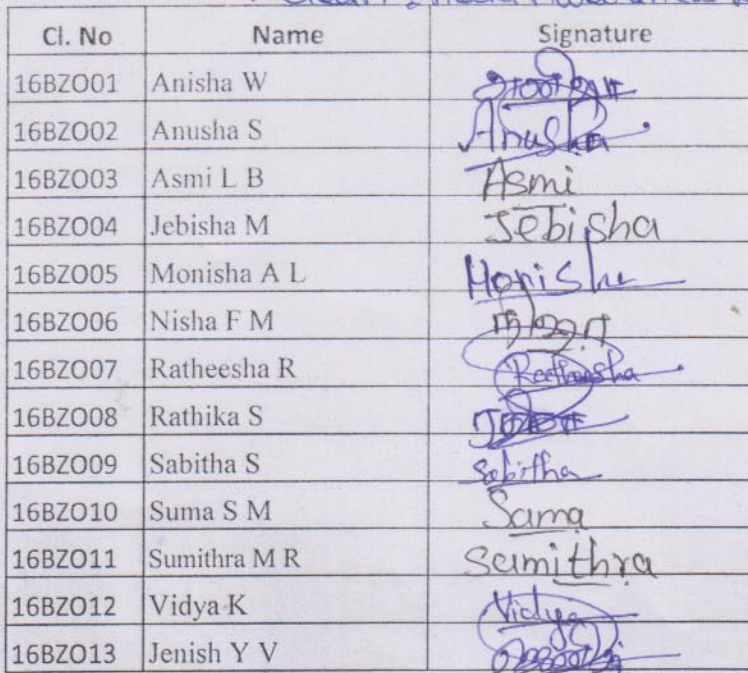 Cl. No Name Signature
16BZO01 Anisha W
16BZO02 Anusha S Anusha
16BZO03 Asmi L B Asmi
16BZO04 Jebisha M Jebisha
16BZO05 Monisha A L Monisha
16BZO06 Nisha F M
16BZO07 Ratheesha R Ratheesha
16BZO08 Rathika S
16BZO09 Sabitha S Sabitha
16BZO10 Suma S M Suma
16BZO11 Sumithra M R Sumithra
16BZO12 Vidya K Vidya
16BZO13 Jenish Y V